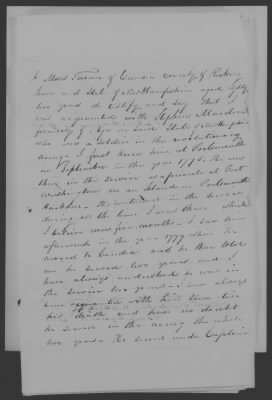 I Moses Turner of Candia County of Rock-
ham and State of Newhampshire aged eighty
two years do testify and say that I
was acquainted with Stephen Marden
formerly of Rye in said State of Newhampshire
who was a soldier in the revolutionary
army - I first knew him at Portsmouth
in September in the year 1776. He was
then in the service as private at Fort
Washington on an Island in Portsmouth
Harbour. He continued in the service
during all the time I was there which
I think was five months - I saw him
afterwards in the year 1777 when he
moved to Candia and he then told
me he served two years and I
have always understood he was in
the service two years - I have always
been acquainted with him since till
his death and have no doubt
he served in the army the whole
two years - He served under Captain